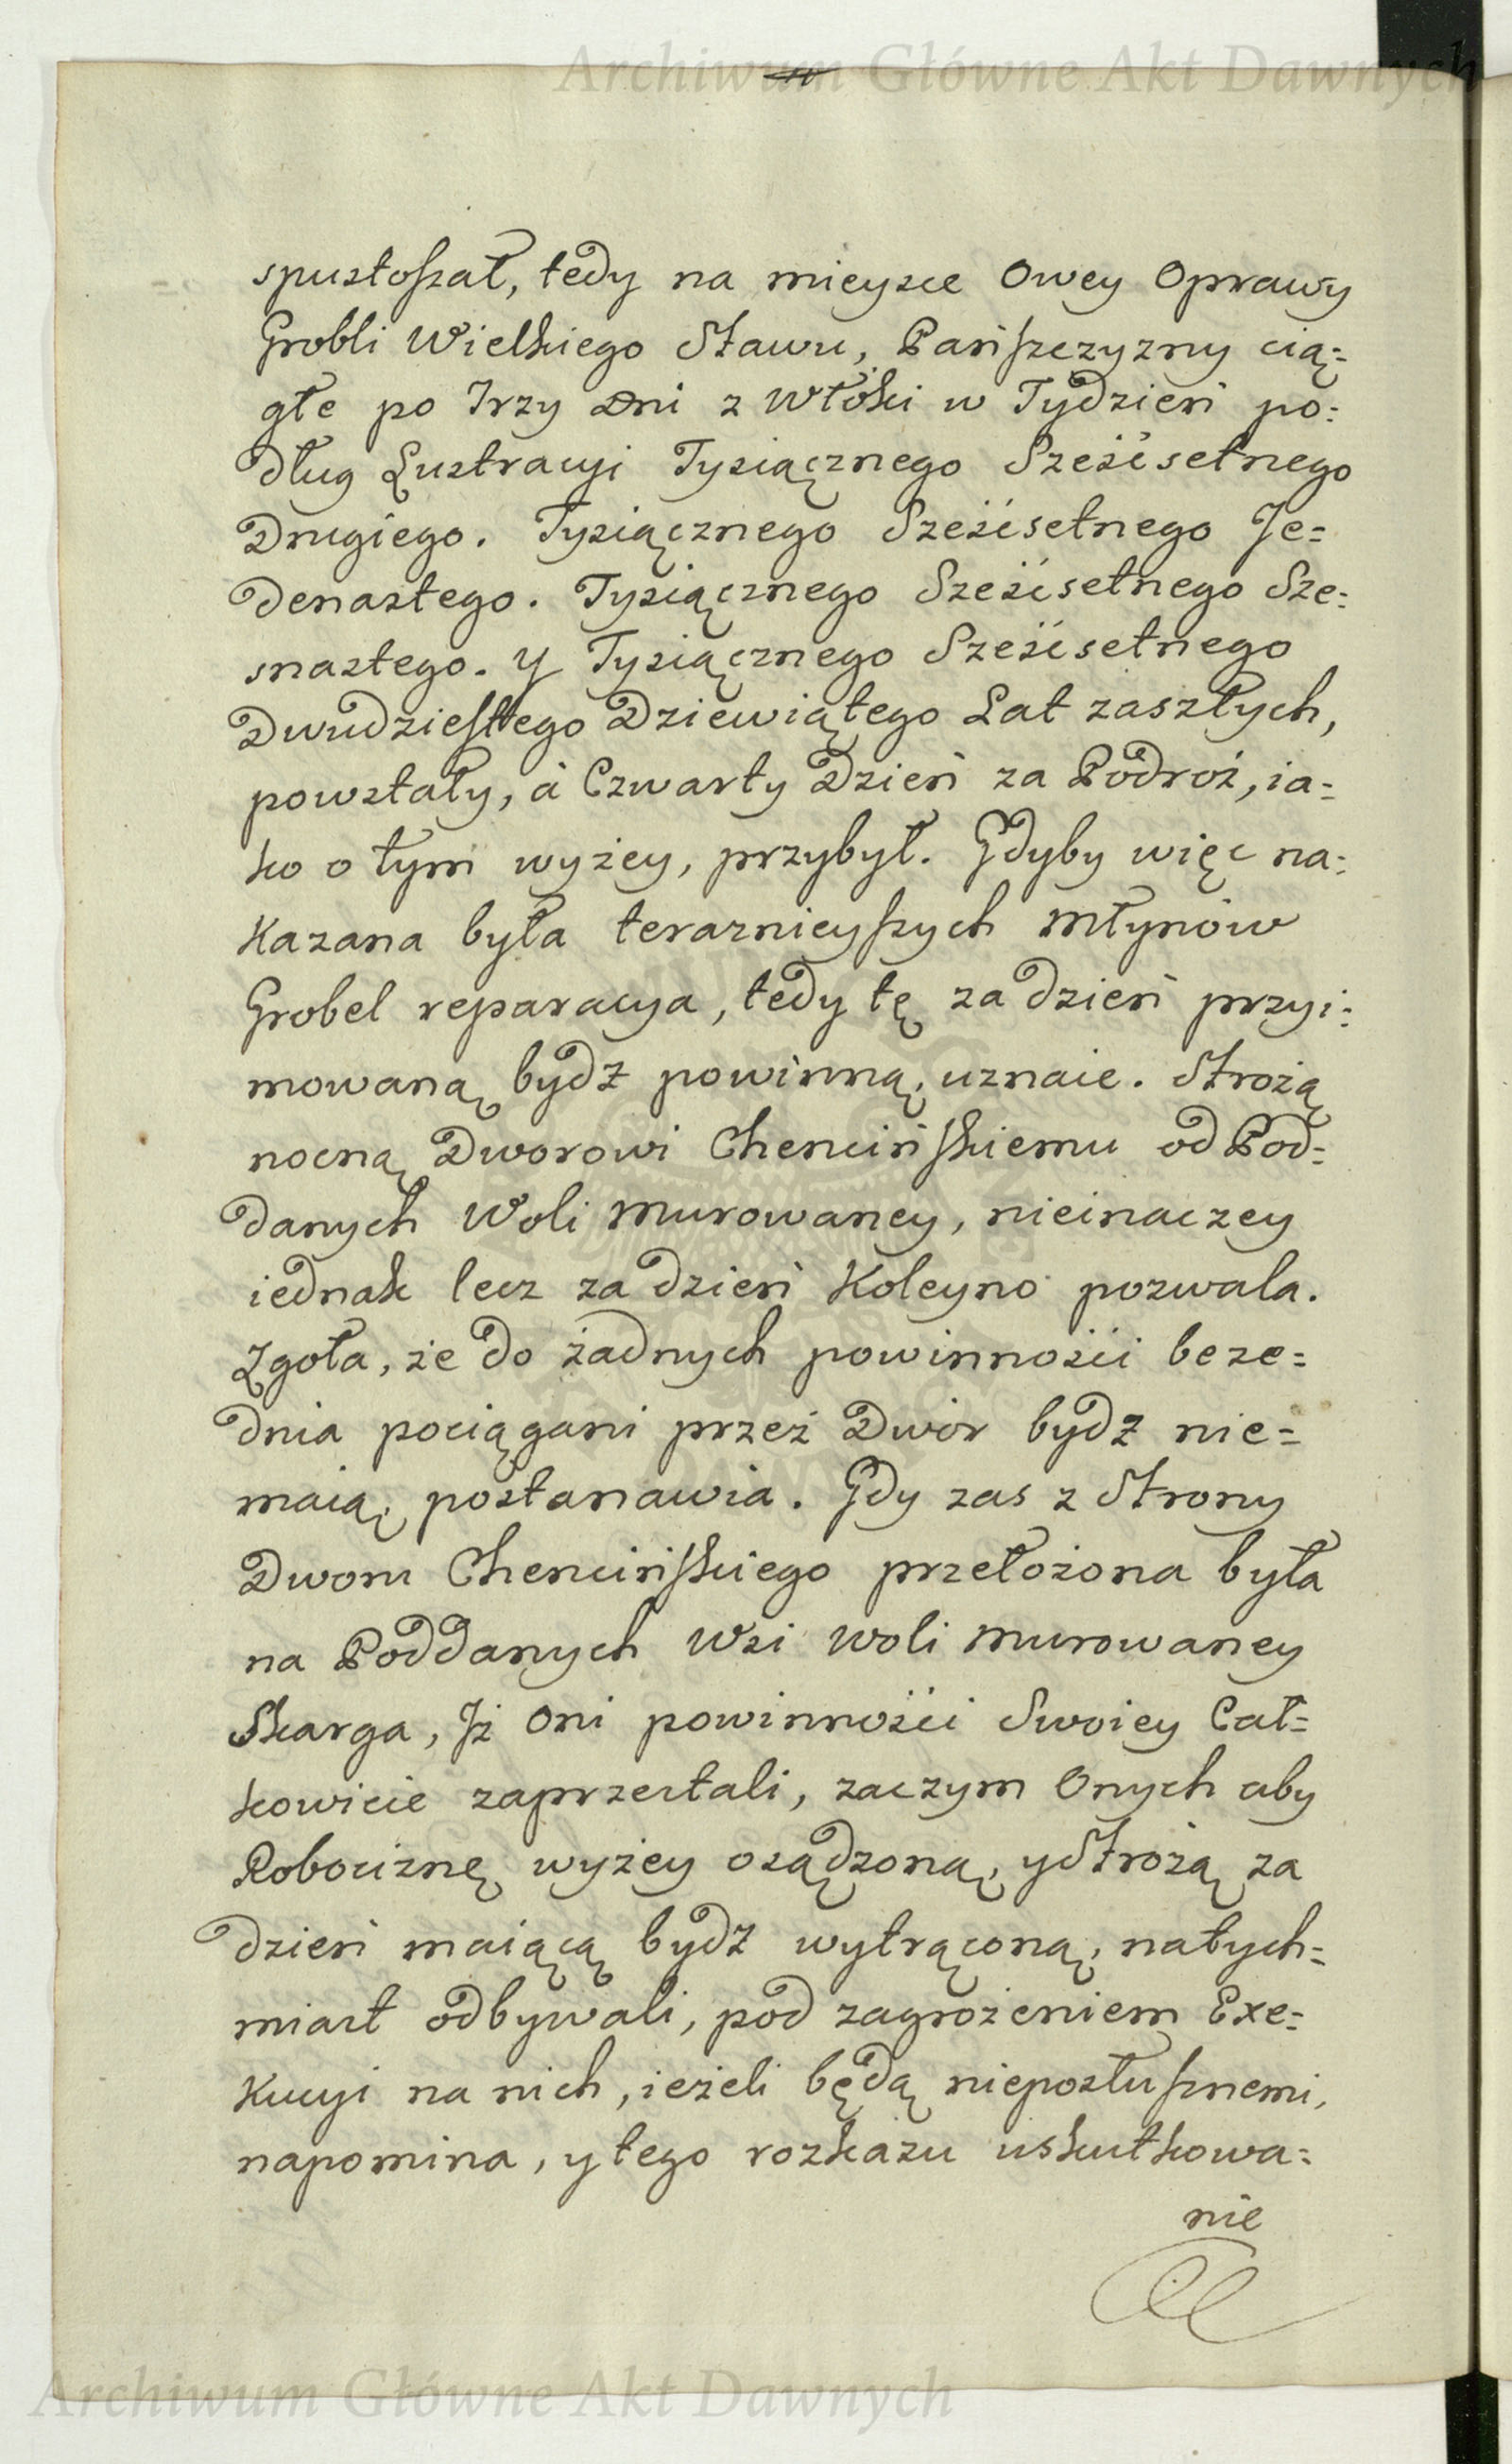 Archiwum Główne Akt Dawnych
spustoszał, tedy na mieysce Owey Oprawy
Grobli Wielkiego Stawu, Pańszczyzny cią=
głe po Trzy Dni z Włóki w Tydzień po=
dług Lustracyi Tysiącznego Sześćsetnego
Drugiego. Tysiącznego Sześćsetnego Je=
denastego. Tysiącznego Sześćsetnego Sze=
snastego. y Tysiącznego Sześćsetnego
Dwudziestego Dziewiątego Lat zaszłych,
powstały, á Czwarty Dzień za Podroż, ia=
ko o tym wyżey, przybył. Gdyby więc na=
Kazana była teraznieyszych Młynów
Grobel reparacya, tedy tę za dzień przyi=
mowaną bydź powinną, uznaie. Strożą
nocną Dworowi Chencińskiemu od Pod=
danych Woli Murowaney, nieinaczey
iednak lecz za dzień Koleyno pozwala.
Zgoła, że do żadnych powinności beze=
dnia pociągani przez Dwór bydź nie=
maią, postanawia. Gdy zas z Strony
Dworu Chencińskiego przełożona była
na Poddanych Wsi Woli Murowaney
Skarga, Jż Oni powinności Swoiey Cał=
kowicie zaprzestali, zaczym Onych aby
Robociznę wyżey osądzoną, y Strożą za
dzień maiącą bydź wytrąconą, natych=
miast odbywali, pod zagrożeniem Exe=
Kucyi na nich, ieżeli będą nieposłusznemi,
napomina, y tego rozkazu uskutkowa=
nie
Archiwum Główne Akt Dawnych